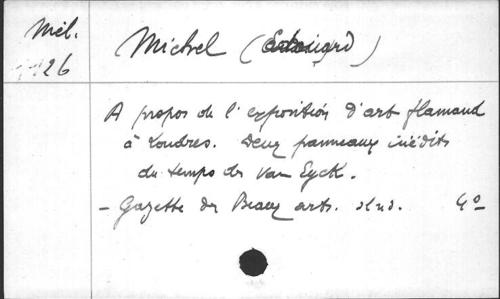 Mél.
1126
Michel (Edouard)
A propos de l'exposition d'art flamand
à Londres. Deux panneaux inédits
du temps de Van Eyck.
- Gazette des Beaux arts. slnd. 4°